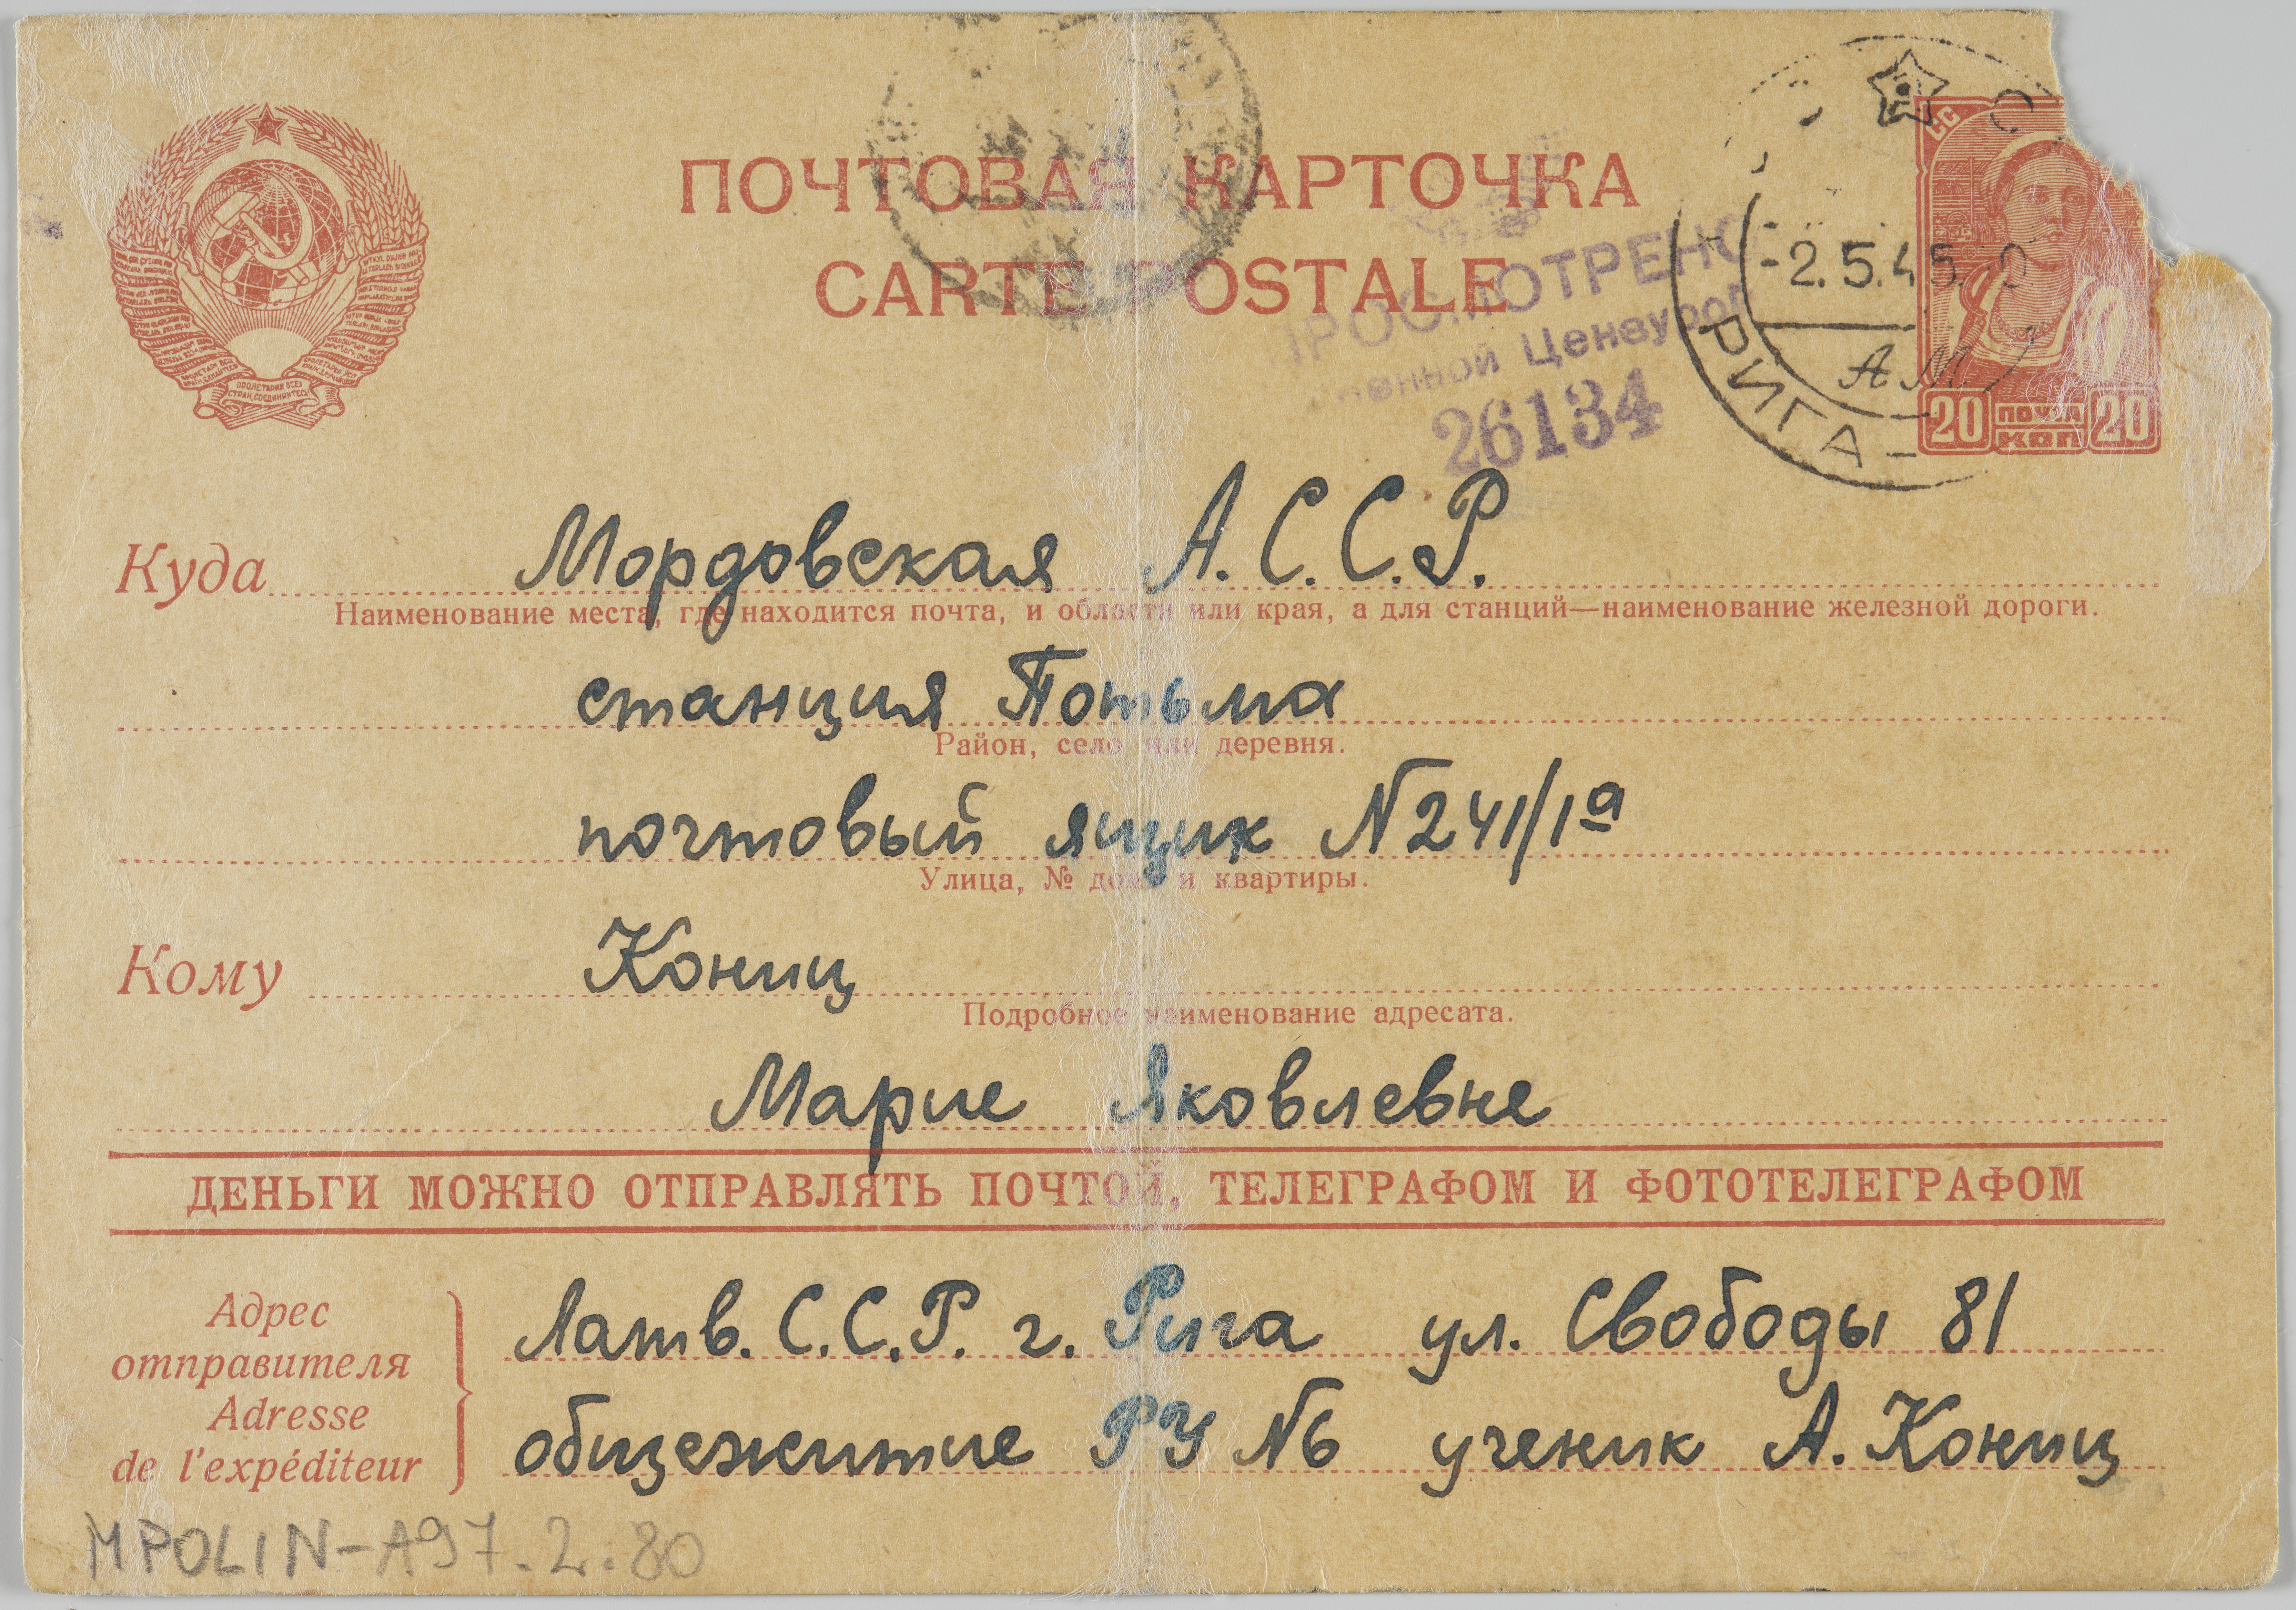 ПОЧТОВАЯ КАРТОЧКА
CARTE POSTALE
ПРОЛЕТАРИИ ВСЕХ
СТРАН, СОЕДИНЯЙТЕСЬ
ПРОСМОТРЕНО
Военной Цензурой
26134
-2.5.45
РИГА
20 ПОЧТА 20
КОП
Куда Мордовская А.С.С.Р.
Наименование места, где находится почта, и области или края, а для станций—наименование железной дороги.
станция Потьма
Район, село или деревня.
почтовый ящик N241/1а
Улица, № дома и квартиры.
Кому Кониц
Подробное наименование адресата.
Марие Яковлевне
ДЕНЬГИ МОЖНО ОТПРАВЛЯТЬ ПОЧТОЙ, ТЕЛЕГРАФОМ И ФОТОТЕЛЕГРАФОМ
Адрес
отправителя
Adresse
de l'expéditeur
Латв. С.С.Р. г. Рига ул. Свободы 81
общежитие РУ N6 ученик А. Кониц
MPOLIN-A97.2.80